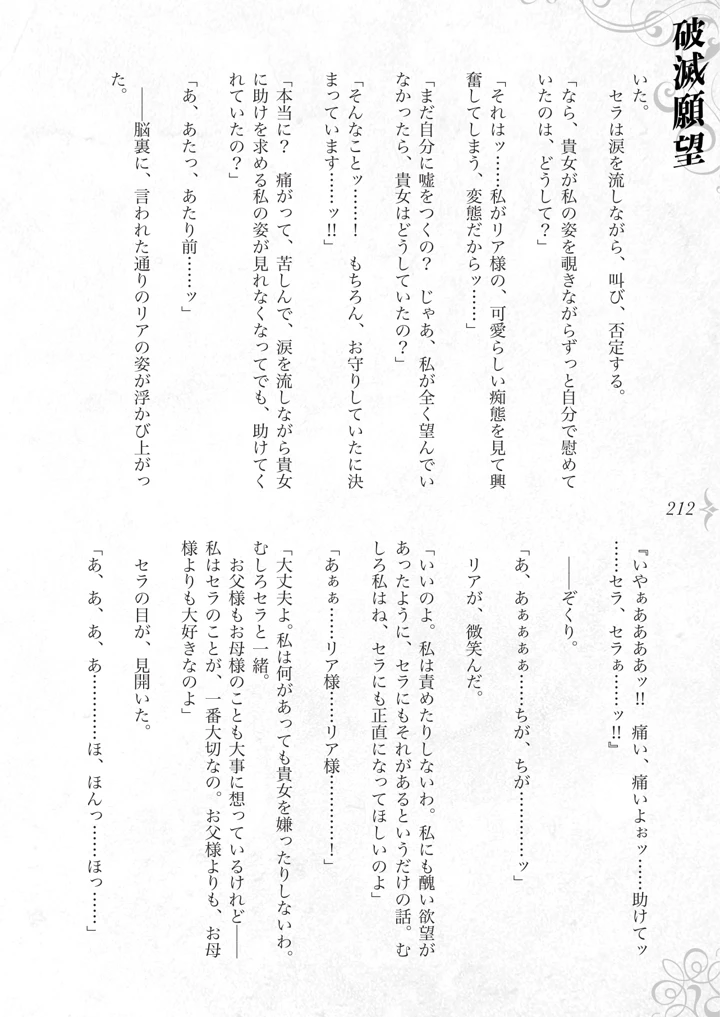 破滅願望
いた。
セラは涙を流しながら、叫び、否定する。
「なら、貴女が私の姿を覗きながらずっと自分で慰めて
いたのは、どうして？」
「それはッ……私がリア様の、可愛らしい痴態を見て興
奮してしまう、変態だからッ……」
「まだ自分に嘘をつくの？　じゃあ、私が全く望んでい
なかったら、貴女はどうしていたの？」
「そんなことッ……！　もちろん、お守りしていたに決
まっています……ッ!!」
「本当に？　痛がって、苦しんで、涙を流しながら貴女
に助けを求める私の姿が見れなくなってでも、助けてく
れていたの？」
「あ、あたっ、あたり前……ッ」
――脳裏に、言われた通りのリアの姿が浮かび上がっ
た。
『いやぁああああッ!!　痛い、痛いよぉッ……助けてッ
……セラ、セラぁ……ッ!!』
――ぞくり。
「あ、あぁぁぁぁ……ちが、ちが…………ッ」
リアが、微笑んだ。
「いいのよ。私は責めたりしないわ。私にも醜い欲望が
あったように、セラにもそれがあるというだけの話。む
しろ私はね、セラにも正直になってほしいのよ」
「あぁぁ……リア様……リア様…………！」
「大丈夫よ。私は何があっても貴女を嫌ったりしないわ。
むしろセラと一緒。
お父様もお母様のことも大事に想っているけれど――
私はセラのことが、一番大切なの。お父様よりも、お母
様よりも大好きなのよ」
セラの目が、見開いた。
「あ、あ、あ、あ…………ほ、ほんっ……ほっ……」
212